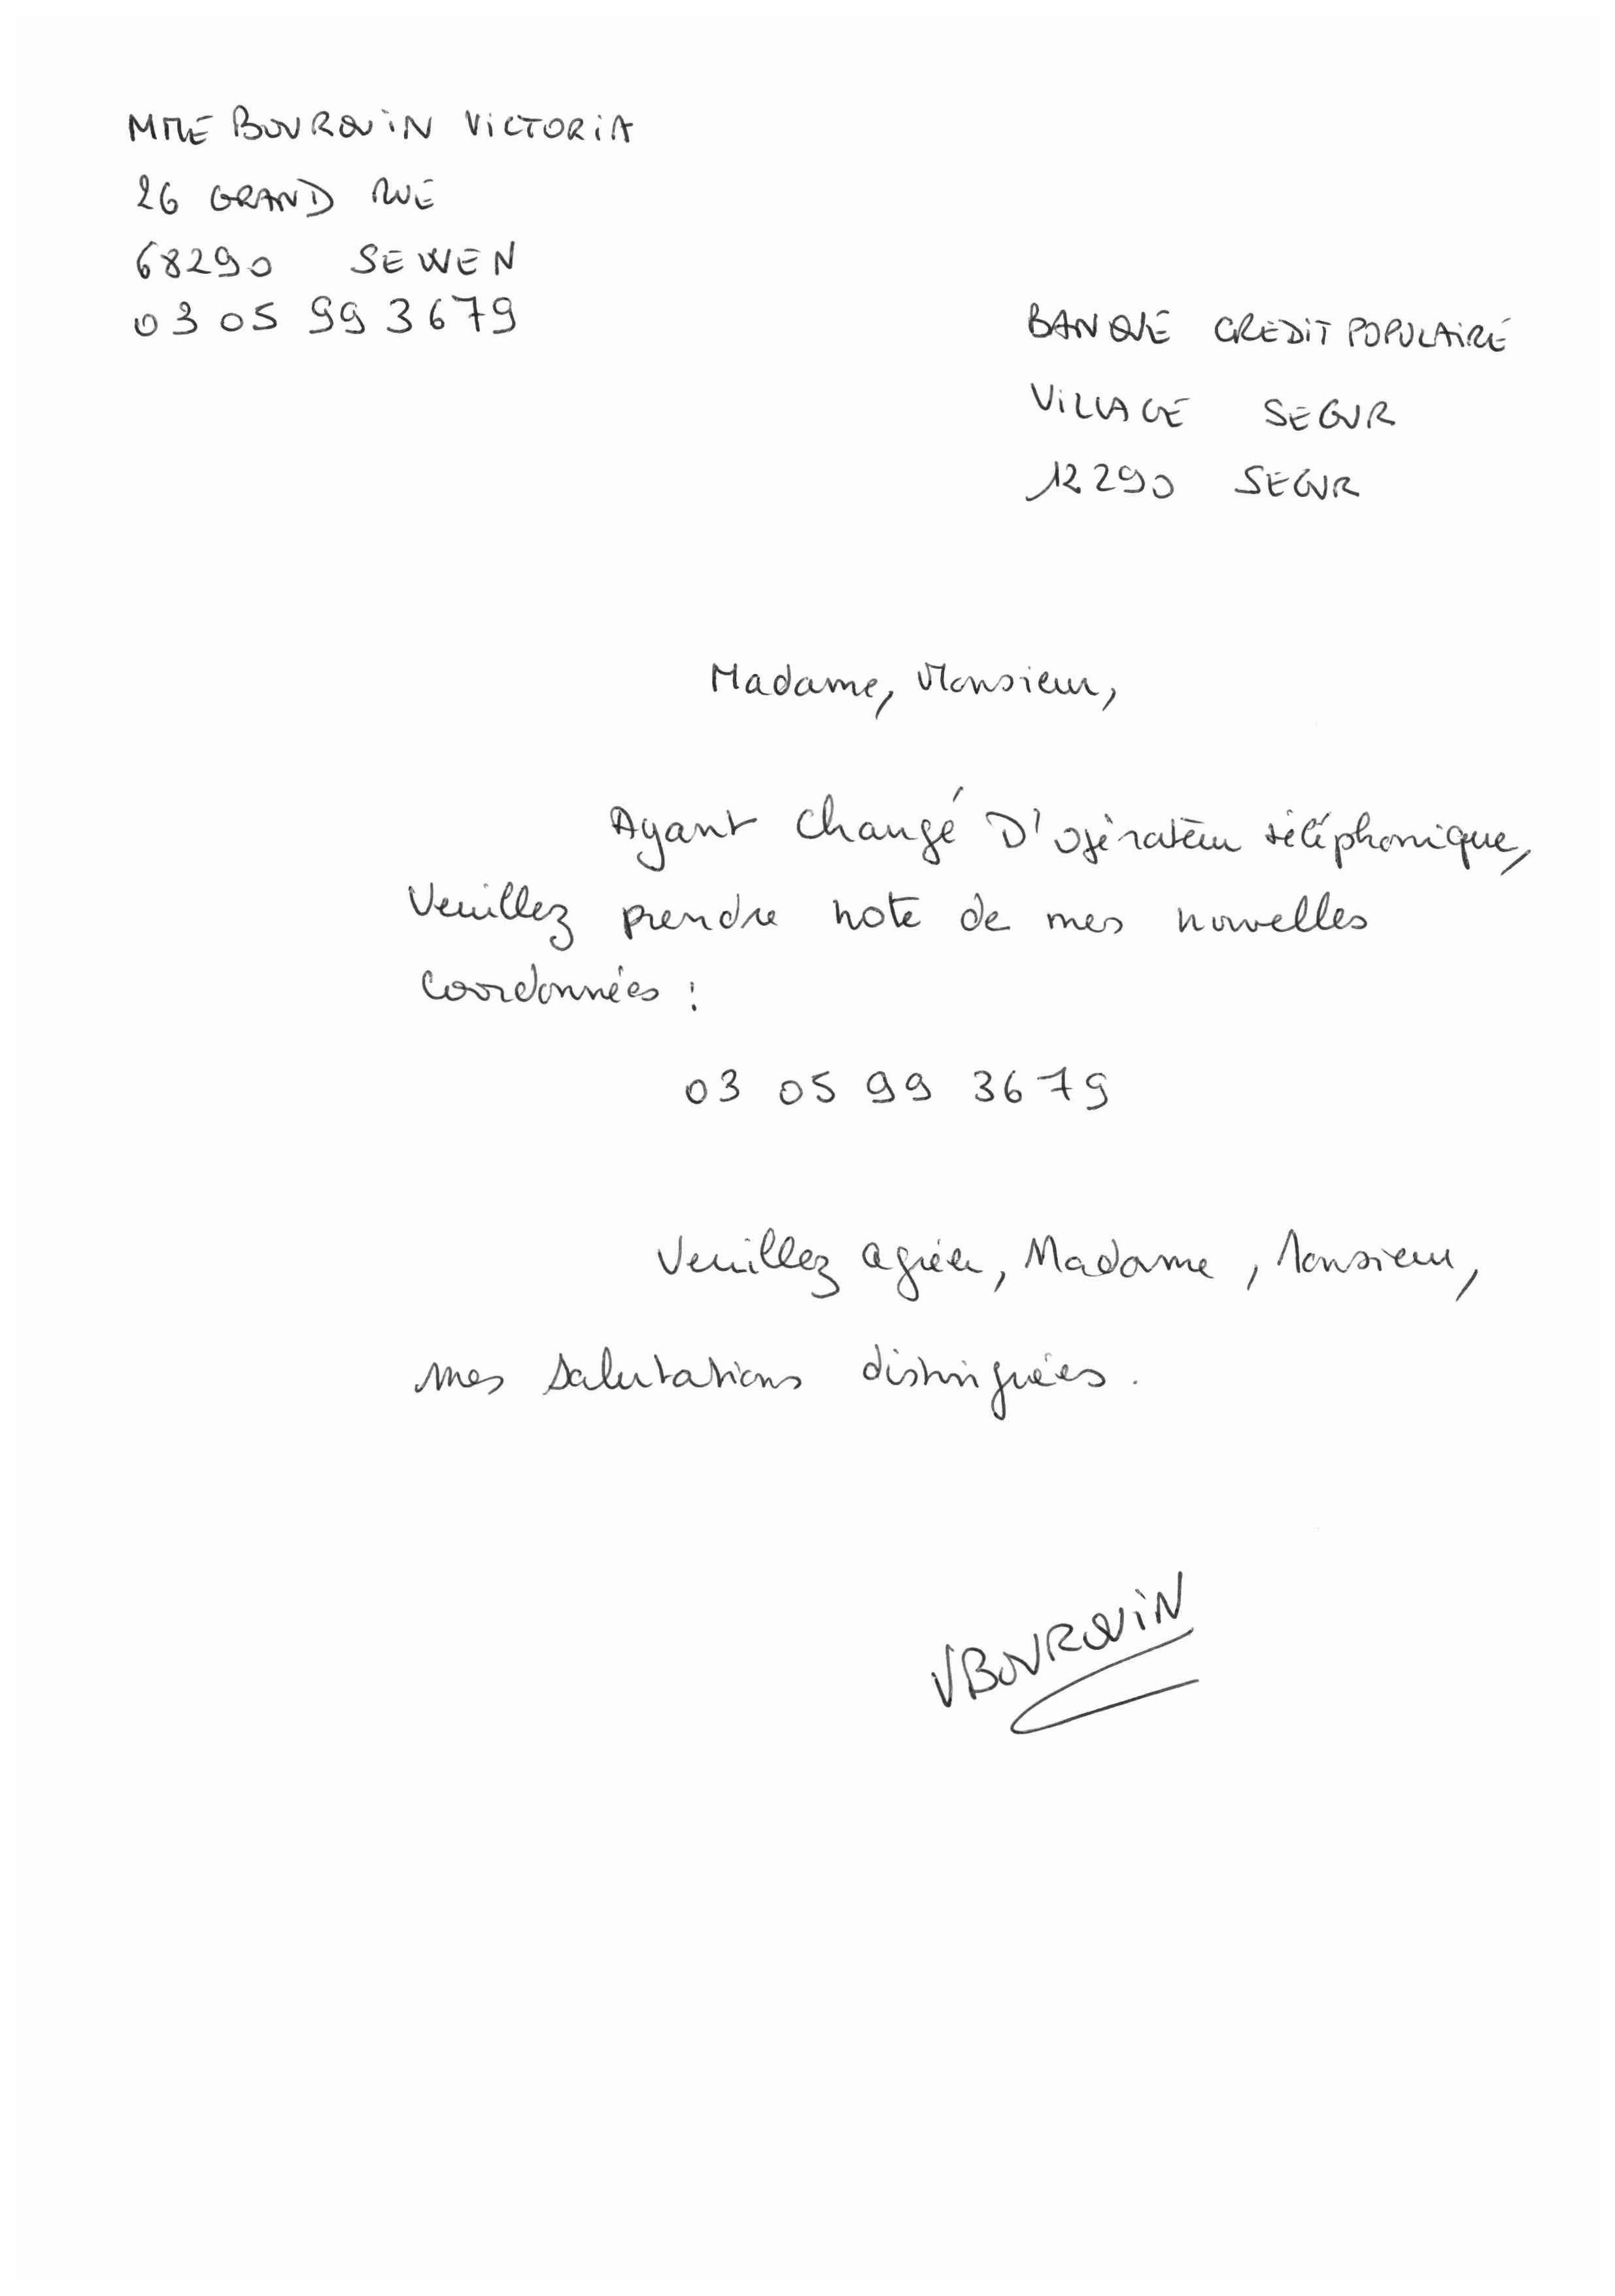 MME BOURQUIN VICTORIA
26 GRAND RUE
68290 SEWEN
03 05 99 3679
BANQUE CREDIT POPULAIRE
VILLAGE SEGUR
12290 SEGUR
Madame, Monsieur,
Ayant changé D'opérateur téléphonique,
Veuillez prendre note de mes nouvelles
coordonnées :
03 05 99 3679
Veuillez agréer, Madame, Monsieur,
mes salutations distinguées.
VBOURQUIN